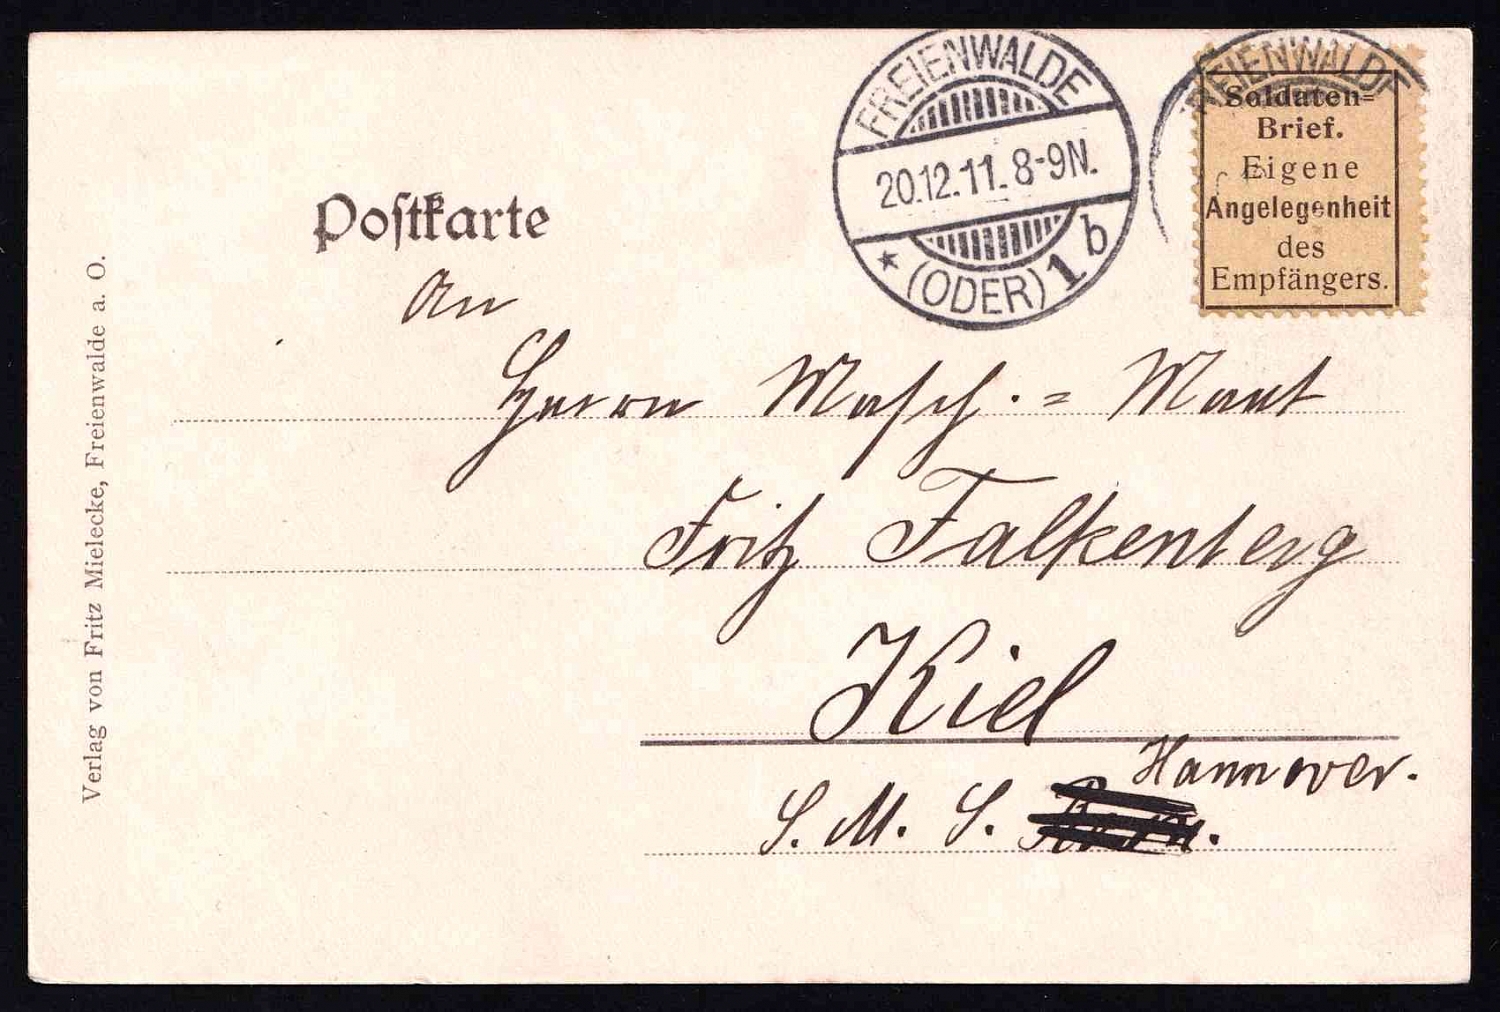 Postkarte
FREIENWALDE
20.12.11. 8-9N.
* (ODER) 1 b
REIENWALDE
Soldaten=
Brief.
Eigene
Angelegenheit
des
Empfängers.
An
Herrn Masch. = Maat
Fritz Falkenberg
Kiel
Hannover.
S. M. S.
Verlag von Fritz Mielecke, Freienwalde a. O.